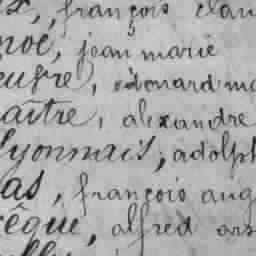 x, françois clau
noé, jean marie
eufre, édouard ma
aître, alexandre
lyonnais, adolph
as, françois aug
êque, alfred ars